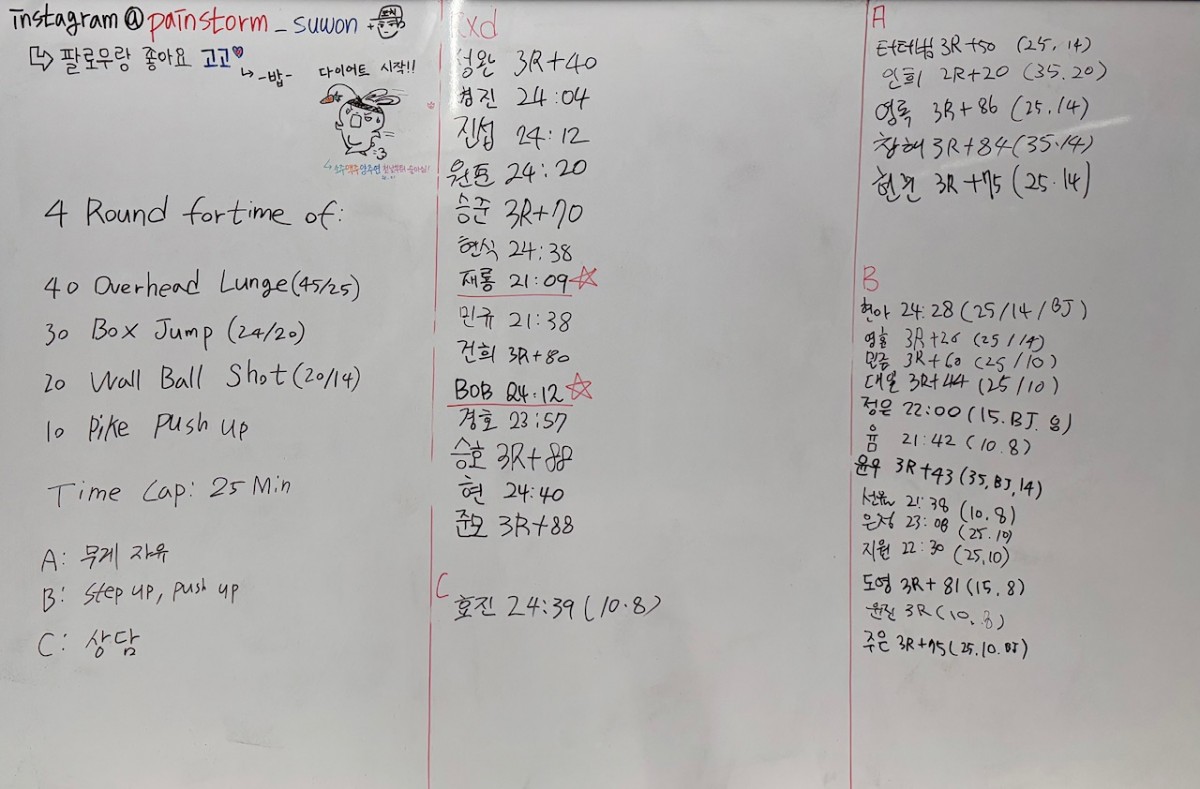 instagram@painstorm_suwon
팔로우랑 좋아요 고고
-밥-
다이어트 시작!!
4 Round for time of:
40 Overhead Lunge(45/25)
30 Box Jump (24/20)
20 Wall Ball Shot(20/14)
10 Pike Push up
Time Cap: 25 Min
A: 무게 자유
B: Step up, push up
C: 상담
Rxd
성완 3R+40
경진 24:04
진섭 24:12
24:20
승준 3R+70
현식 24:38
재룡 21:09
민규 21:38
건희 3R+80
BOB 24:12
경호 23:57
승호 3R+88
현 24:40
준모 3R+88
C
효진 24:39(10.8)
A
3R+50 (25.14)
인희 2R+20 (35.20)
영록 3R+86 (25.14)
3R+84(35.14)
3R+75(25.14)
B
현아 24:28(25/14/BJ)
3R+26 (25/14)
3R+60 (25/10)
대일 3R+44 (25/10)
정은 22:00(15.BJ.8)
윰 21:42(10.8)
윤우 3R+43(35,BJ,14)
21:38 (10.8)
은정 23:08 (25.10)
지원 22:30 (25,10)
도영 3R+81(15.8)
3R(10.8)
주은 3R+75(25.10.BJ)